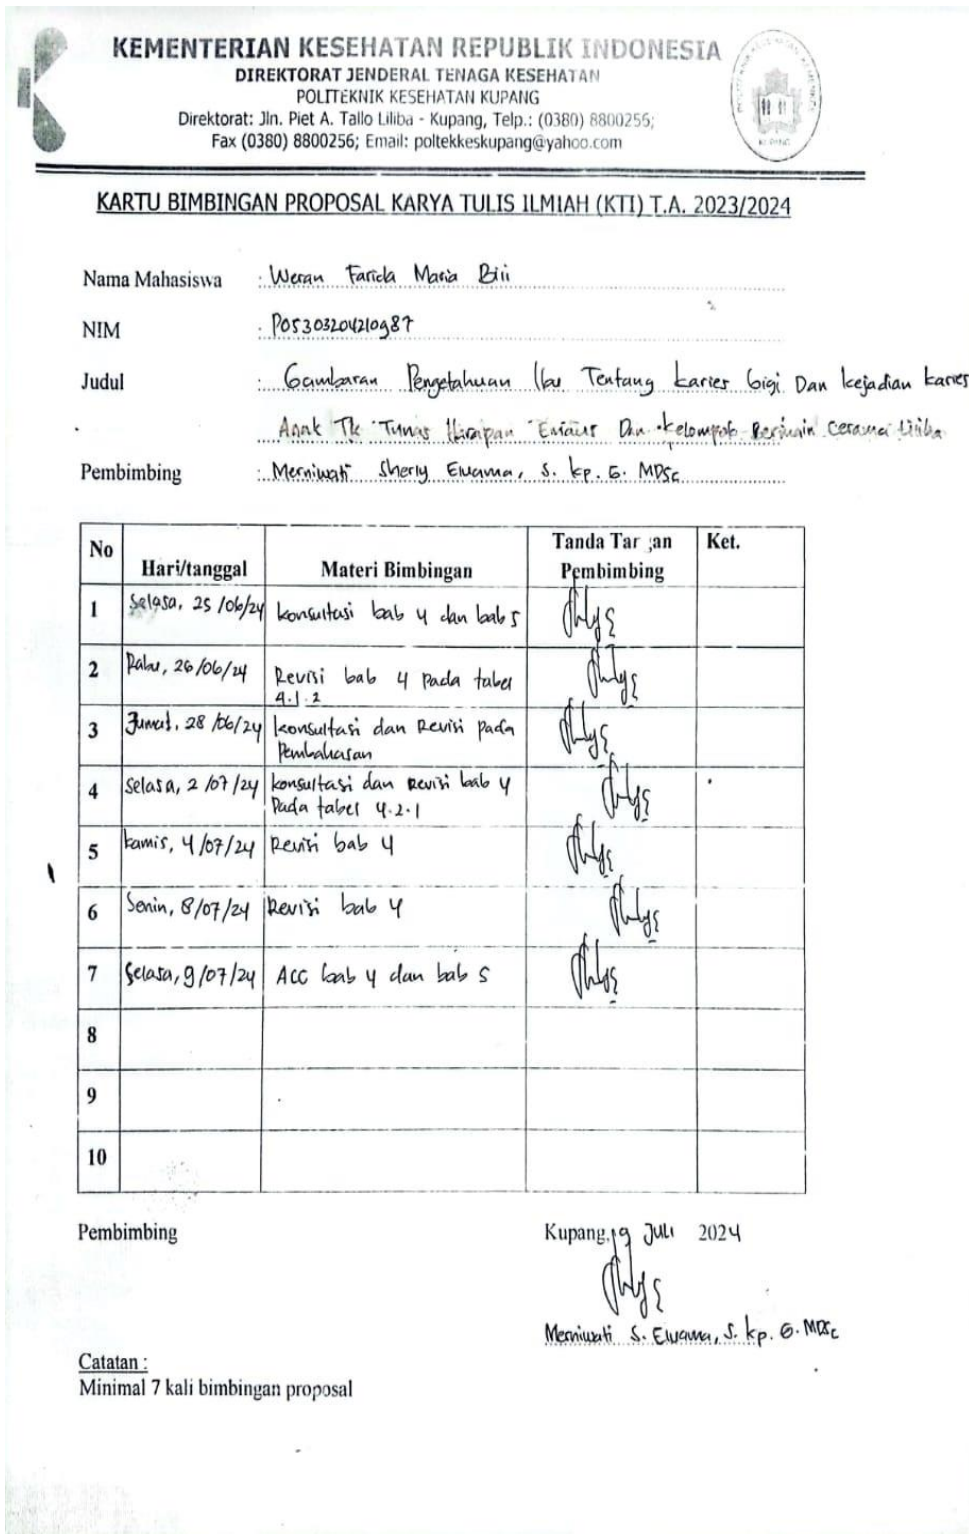 KEMENTERIAN KESEHATAN REPUBLIK INDONESIA
DIREKTORAT JENDERAL TENAGA KESEHATAN
POLITEKNIK KESEHATAN KUPANG
Direktorat: Jln. Piet A. Tallo Liliba - Kupang, Telp.: (0380) 8800256;
Fax (0380) 8800256; Email: poltekkeskupang@yahoo.com
KARTU BIMBINGAN PROPOSAL KARYA TULIS ILMIAH (KTI) T.A. 2023/2024
Nama Mahasiswa : Weran Farida Maria
NIM : PO5303204210987
Judul : Gambaran Pengetahuan Ibu Tentang karies Gigi Dan kejadian karies
Anak Tk Tunas Harapan Dan kelompok Bermain Liliba
Pembimbing : Merniwati Sherly Eluama, S. kp. G. MDSc
No Hari/tanggal Materi Bimbingan Tanda Tangan Pembimbing Ket.
1 Selasa, 25/06/24 konsultasi bab 4 dan bab 5
2 Rabu, 26/06/24 Revisi bab 4 pada tabel
4.1.2
3 Jumat, 28/06/24 konsultasi dan Revisi pada
Pembahasan
4 Selasa, 2/07/24 konsultasi dan Revisi bab 4
Pada tabel 4.2.1
5 kamis, 4/07/24 Revisi bab 4
6 Senin, 8/07/24 Revisi bab 4
7 Selasa, 9/07/24 ACC bab 4 dan bab 5
8
9
10
Pembimbing
Kupang, 19 JULI 2024
Merniwati S. Eluama, S. kp. G. MDSc
Catatan :
Minimal 7 kali bimbingan proposal